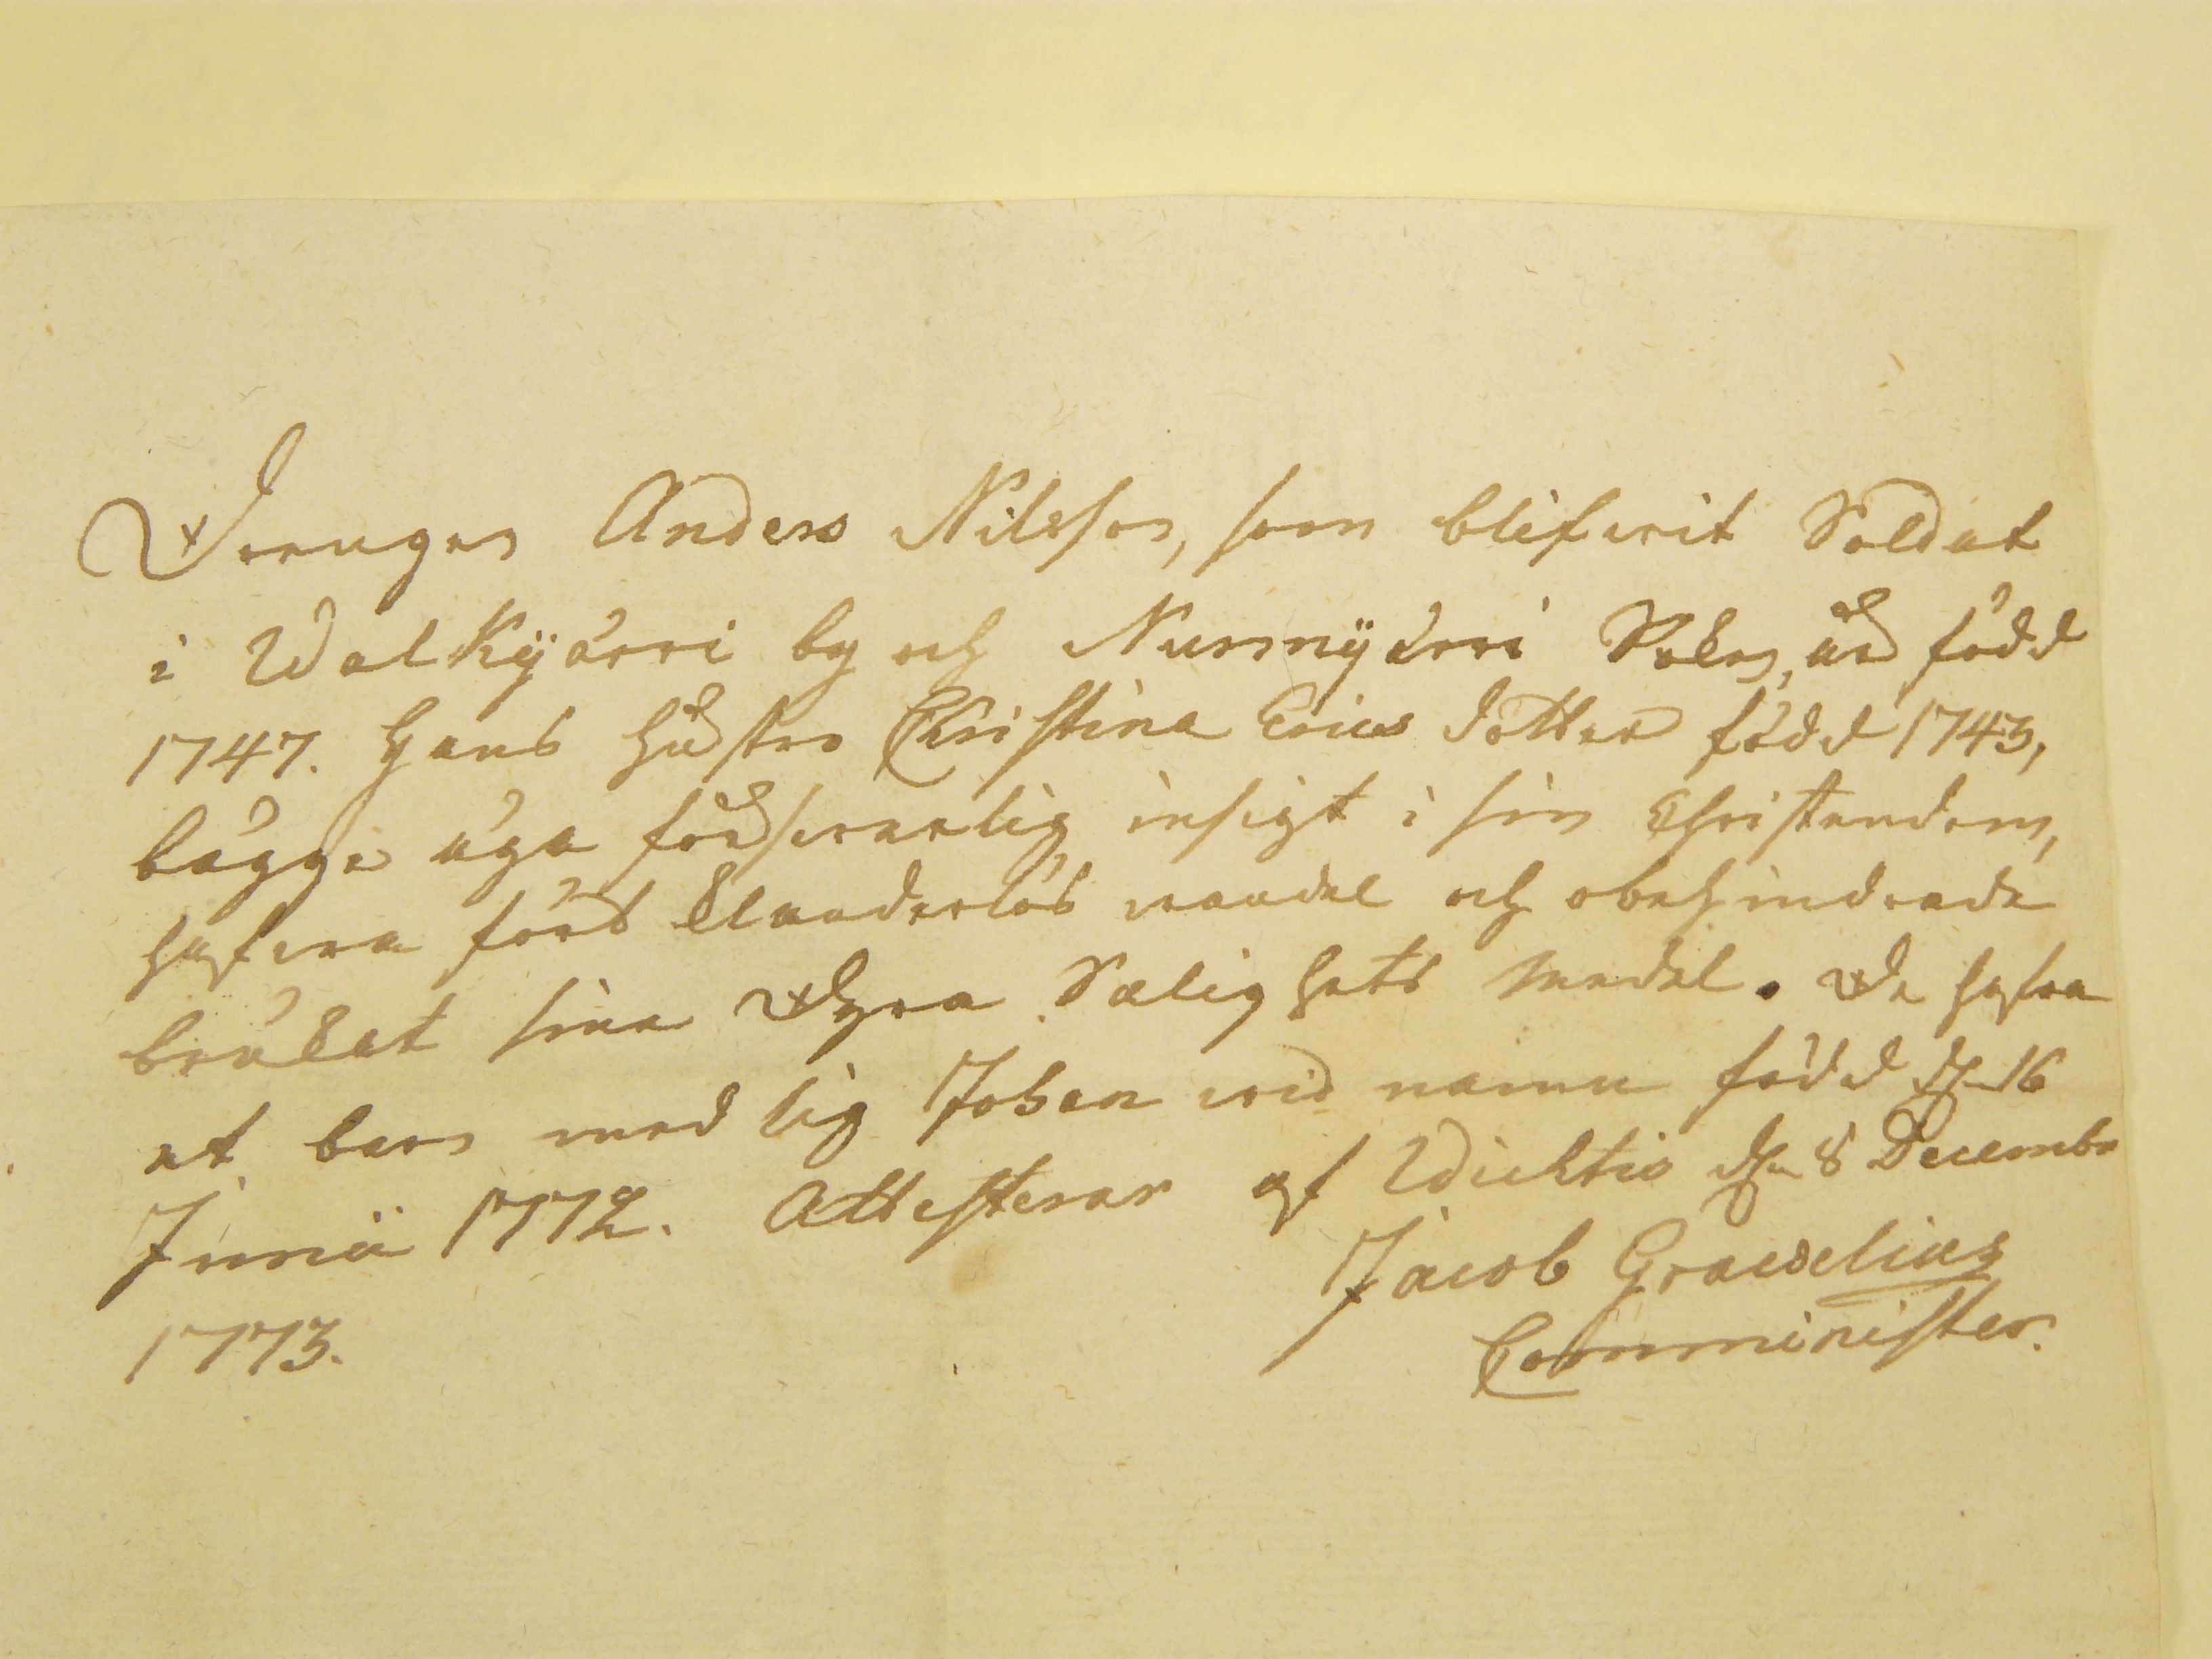 Drengen Anders Nilsson, som blifwit Soldat
i Walkjärri by och Nurmijärvi Sokn, är född
1747. Hans hustro Christina Erics dotter född 1743,
bägge äga förswarlig insigt i sin Christendom,
hafwa fördt klanderlös wandel och obehindrade
brukat sina dyra Salighets medel. De hafwa
et barn med sig Johan wid namn född d. 16
Junii 1772. Attesterar af Wichtis d. 8 Decembr
1773.
Jacob Graeselius
Comminister.